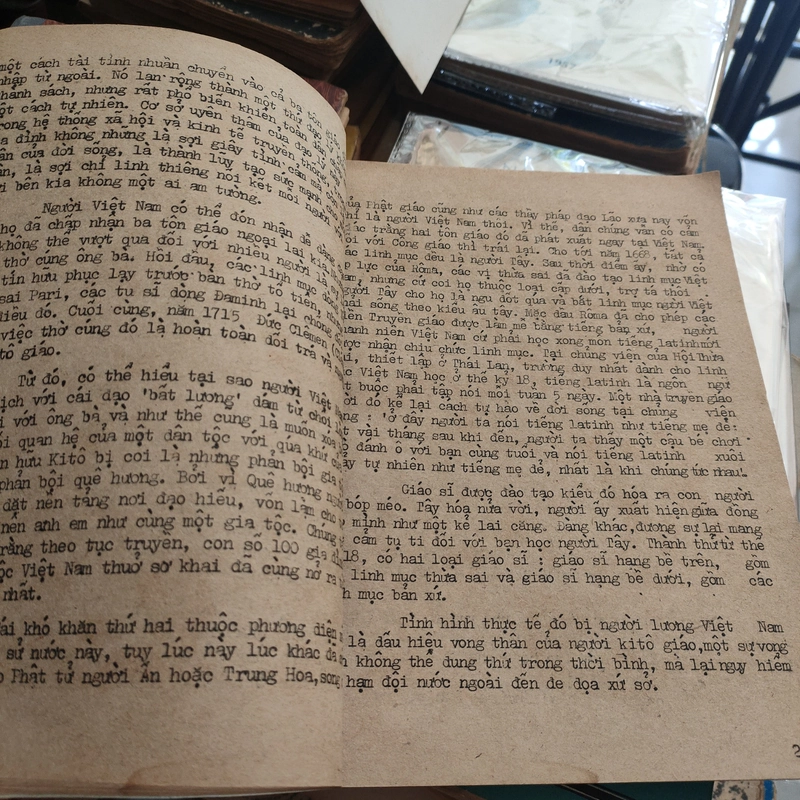 một cách tài tình nhuần chuyển vào cả ba tôn
nhập từ ngoài. Nó lan rộng thành một thứ đạo tự
thành sách, nhưng rất phổ biến khiến toàn dân
một cách tự nhiên. Cơ sở uyên thâm của đạo
rong hệ thống xã hội và kinh tế truyền thống,
a đình không những là sợi giây tình cảm mà còn
ân của đời sống, là thành luỹ tạo sức mạnh
ần, là sợi chỉ linh thiêng nối kết mỗi người
i bên kia không một ai am tường.
Người Việt Nam có thể đón nhận dễ dàng
họ đã chấp nhận ba tôn giáo ngoại lai kia
không thể vượt qua đối với nhiều người là sự
thờ cúng ông bà. Hồi đầu, các linh mục dòng
tín hữu phục lạy trước bàn thờ tổ tiên,
sai Pari, các tu sĩ dòng Đaminh lại chống
điều đó. Cuối cùng, năm 1715 Đức Clêmen
việc thờ cúng đó là hoàn toàn đối trá và
tô giáo.
Từ đó, có thể hiểu tại sao người Việt
ịch với cái đạo 'bất lương' dám từ chối
i với ông bà và như thế cũng là muốn xóa
ối quan hệ của một dân tộc với quá khứ
n hữu Kitô bị coi là những phần bội gia
phản bội quê hương. Bởi vì Quê hương
đặt nền tảng nơi đạo hiếu, vốn làm cho
nên anh em như cùng một gia tộc. Chúng
rằng theo tục truyền, con số 100 gia
ộc Việt Nam thuở sơ khai đã cùng nở ra
nhất.
ái khó khăn thứ hai thuộc phương diện
sử nước này, tuy lúc này lúc khác
Phật tử người Ấn hoặc Trung Hoa, song
ủa Phật giáo cũng như các thầy pháp đạo Lão xưa nay vốn
hỉ là người Việt Nam thôi. Vì thế, dân chúng vẫn có cảm
iác rằng hai tôn giáo đó đã phát xuất ngay tại Việt Nam.
ối với Công giáo thì trái lại. Cho tới năm 1668, tất cả
ác linh mục đều là người Tây. Sau thời điểm ấy, nhờ có
p lực của Rôma, các vị thừa sai đã đào tạo linh mục Việt
am, nhưng cứ coi họ thuộc loại cấp dưới, trợ tá thôi
gười Tây cho họ là ngu dốt qua và bắt linh mục người Việt
hải sống theo kiểu âu Tây. Mặc dầu Rôma đã cho phép các
iền Truyền giáo được làm mê bằng tiếng bản xứ, người
hanh niên Việt Nam cứ phải học xong môn tiếng latinh mới
ược nhận chịu chức linh mục. Tại chủng viện của Hội Thừa
ai, thiết lập ở Thái Lan, trường duy nhất dành cho linh
ục Việt Nam học ở thế kỷ 18, tiếng latinh là ngôn ngữ
ắt buộc phải tập nói mỗi tuần 5 ngày. Một nhà truyền giáo
ời đó kể lại cách tự hào về đời sống tại chủng viện
ằng : 'ở đây người ta nói tiếng latinh như tiếng mẹ đẻ:
ột vài tháng sau khi đến, người ta thấy một cậu bé chơi
ồ đánh ô với bạn cùng tuổi và nói tiếng latinh xuôi
ảy tự nhiên như tiếng mẹ đẻ, nhất là khi chúng tức nhau!
Giáo sĩ được đào tạo kiểu đó hóa ra con người
bóp méo. Tây hóa nửa vời, người ấy xuất hiện giữa đồng
mình như một kẻ lai căng. Đàng khác, đương sự lại mang
cảm tự ti đối với bạn học người Tây. Thành thử từ thế
18, có hai loại giáo sĩ : giáo sĩ hạng bề trên, gồm
linh mục thừa sai và giáo sĩ hạng bề dưới, gồm các
h mục bản xứ.
Tình hình thực tế đó bị người lương Việt Nam
là dấu hiệu vong thân của người kitô giáo, một sự vong
n không thể dung thứ trong thời bình, mà lại nguy hiểm
hạm đội nước ngoài đến đe dọa xứ sở.